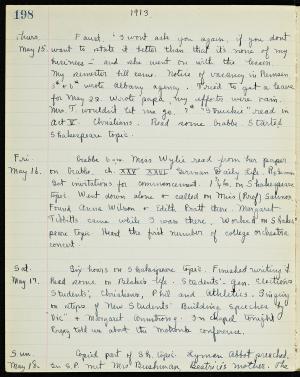 198
1913
Thurs. Faust. "I wont ask you again, if you dont
May 15. want to state it better than that its none of my
business" - and she went on with the lesson.
My semester bill came. Notice of vacancy in
wrote Albany agency. Tried to get a leave
for May 22. Wrote paper, my efforts were vain.
Mrs. T. wouldn't let me go. read in
Act V. Christians. Read some Crabbe. Started
Shakespeare topic.
Fri. Crabbe Miss Wylie read from her paper
May 16. on Crabbe. ch. XXV XXVI German Daily Life.
Got invitations for commencement. on Shakespeare
topic. Went down alone + called on Miss (Prof) Salmon.
Found Anna Wilson + Edith Pratt there. Margaret
Tibbitts came while I was there. Worked on Shakes-
peare topic. Heard the first number of college orchestra
concert.
Sat. Six hours on Shakespeare topic. Finished writing it
May 17. Read some on life. Students' gen. elections
Students', Christians, Phil and Athletics. Singing
on steps of New Students' Building, speeches by
"Vic" + Margaret Armstrong. In chapel tonight
told us about the conference.
Sun. Copied part of Sh. topic. Lyman Abbott preached.
May 18. In S.P. met Mrs. Bushman Beatrice's mother. The